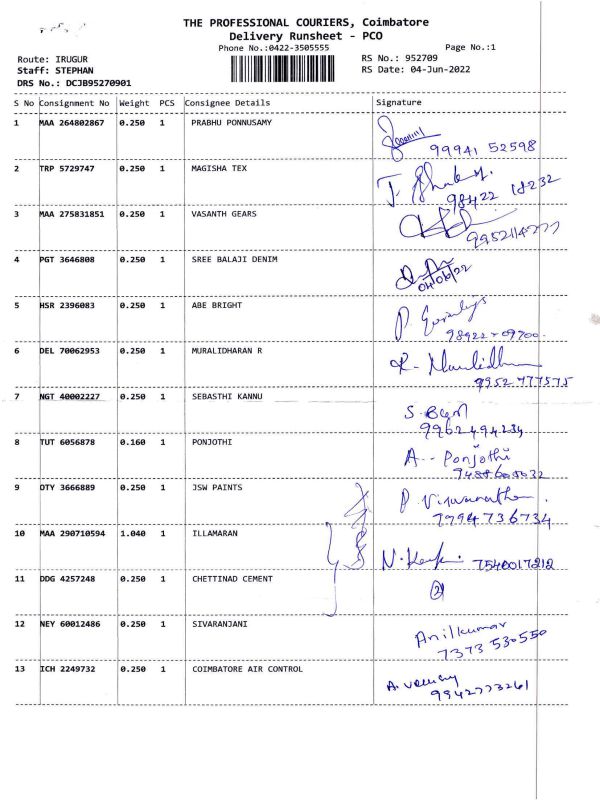 THE PROFESSIONAL COURIERS, Coimbatore
Delivery Runsheet - PCO
Phone No.:0422-3505555
Page No.:1
Route: IRUGUR
RS No.: 952709
Staff: STEPHAN
RS Date: 04-Jun-2022
DRS No.: DCJB95270901
S No Consignment No Weight PCS Consignee Details Signature
1 MAA 264802867 0.250 1 PRABHU PONNUSAMY
99941 52598
2 TRP 5729747 0.250 1 MAGISHA TEX
98422 18232
3 MAA 275831851 0.250 1 VASANTH GEARS
4 PGT 3646808 0.250 1 SREE BALAJI DENIM
04/06/22
5 HSR 2396083 0.250 1 ABE BRIGHT
98922-09700
6 DEL 70062953 0.250 1 MURALIDHARAN R
9952 777575
7 NGT 40002227 0.250 1 SEBASTHI KANNU
9962494234
8 TUT 6056878 0.160 1 PONJOTHI
A. Ponjothi
9 OTY 3666889 0.250 1 JSW PAINTS
7994736734
10 MAA 290710594 1.040 1 ILLAMARAN
7540017212
11 DDG 4257248 0.250 1 CHETTINAD CEMENT
12 NEY 60012486 0.250 1 SIVARANJANI
Anilkumar
7373 530550
13 ICH 2249732 0.250 1 COIMBATORE AIR CONTROL
9942773261